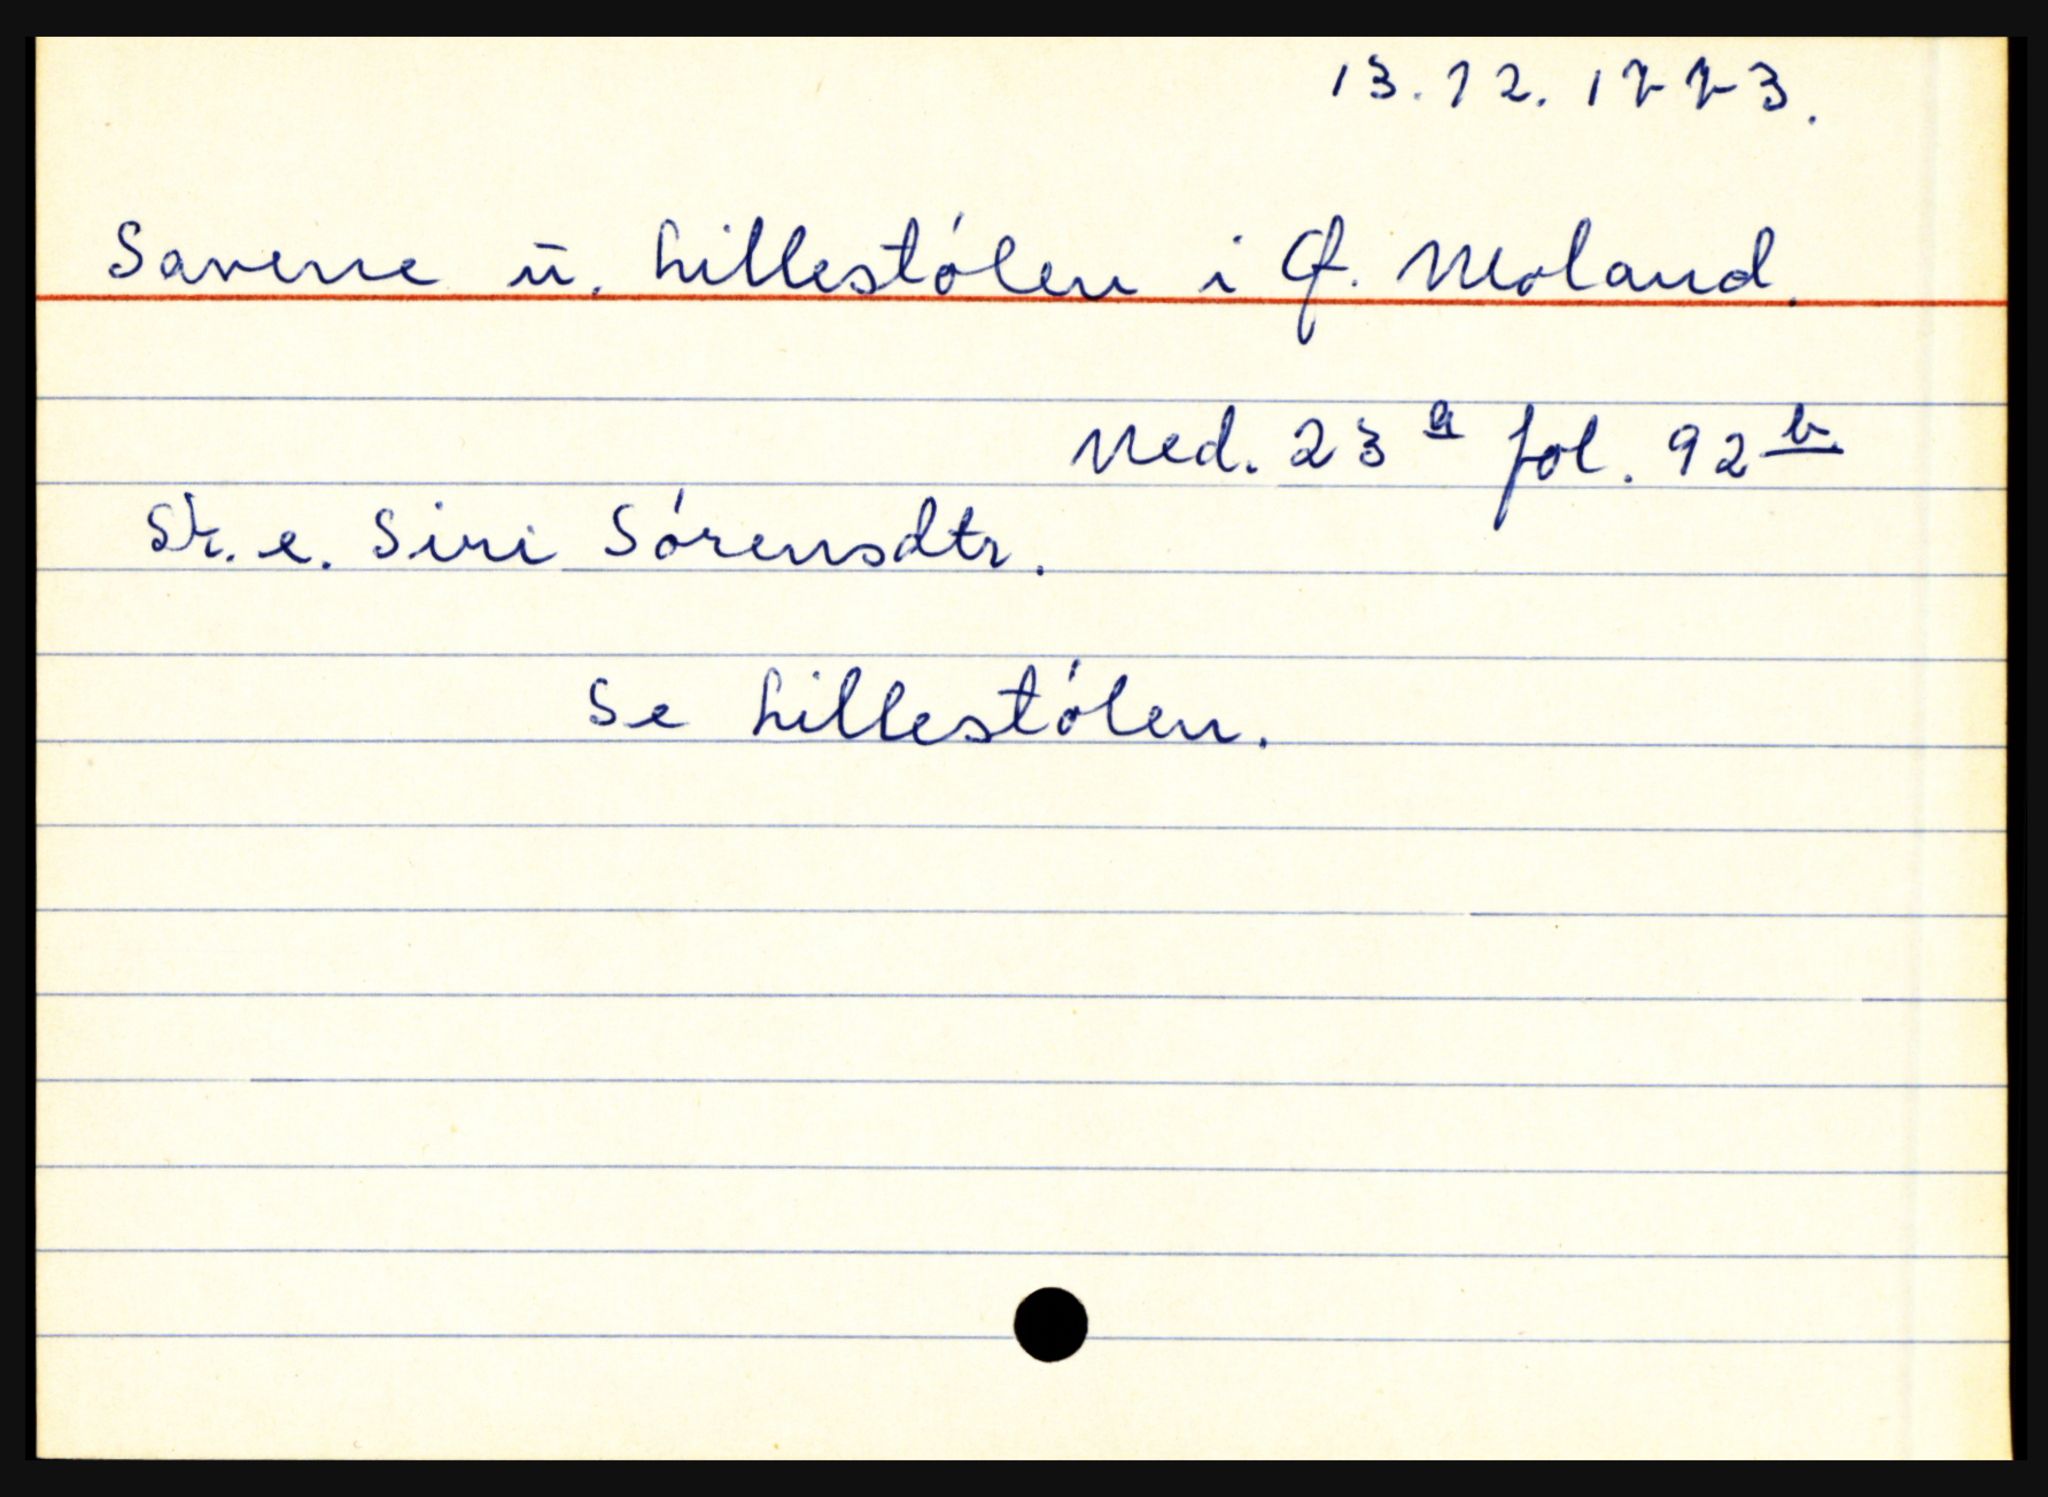 13.12.1773.
Saverne u. Lillestólen i Ø. Moland.
Ned. 23 a fol. 92 b.
Sk. e. Siri Sórensdtr.
Se Lillestólen.